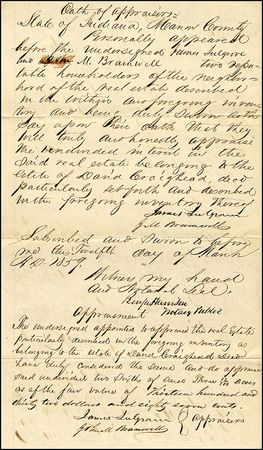 Oath of Appraisers
State of Indiana, Marion County
Personally appeared
before the undersigned James Sulgrove
and John M. Bramwell two repu-
table householders of the neighbor-
hood of the real estate described
in the within and foregoing inven-
tory and being duly sworn autho
say upon their oath that they
will truly and honestly appraise
the undivided interest in the
said real estate belonging to the
Estate of David Craighead, decd
particularly set forth and described
in the foregoing inventory thereof
James Sulgrove
J. M. Bramwell
Subscribed and Sworn to before
me this Twelfth day of March
A.D. 185
Witness my hand
and Notarial Seal
Notary Public
Appraisment
The undersigned appointed to appraise the real Estate
particularly described in the foregoing inventory as
belonging to the estate of David Craighead Decd
have duly considered the same and do appraise
said undivided two of acres
as of the fair value of Nineteen hundred and
thirty two dollars and eighty seven cents.
James Sulgrove
John M Bramwell } Appraisers